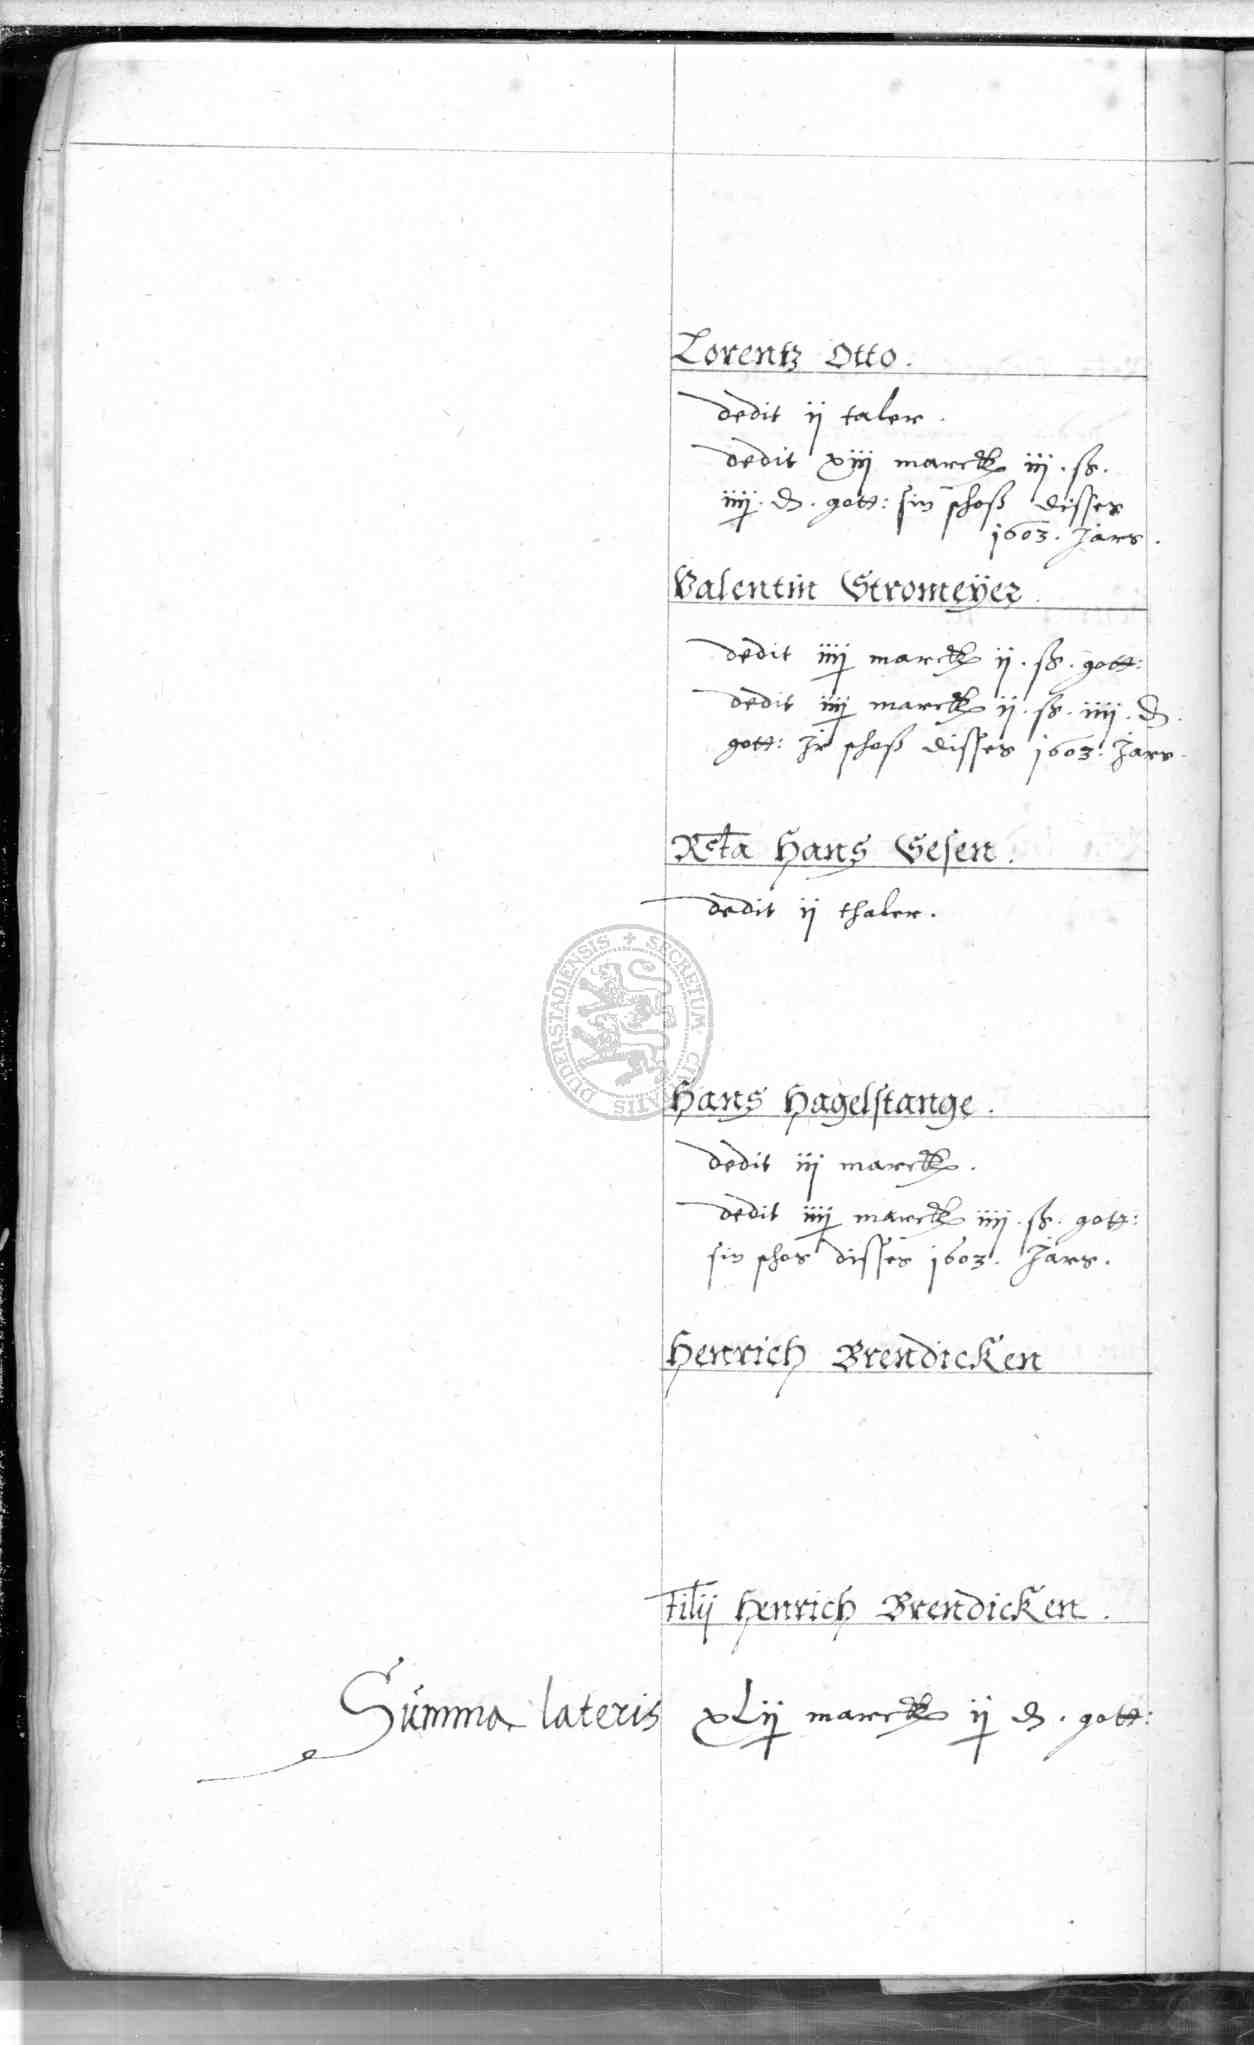 Lorentz Otto.
dedit ij taler.
dedit xiij marck iij. ß.
iiij. d. gott: sin schoß disses
1603. Jars.
Valentin Stromeyer
dedit iiij marck ij. ß. gott:
dedit iiij marck ij. ß. iiij. d.
gott: Jr schoß disses 1603. Jars.
Rcta Hans Gesen.
dedit ij thaler.
DUDERSTADIENSIS + SECRETUM CIVITATIS
Hans Hagelstange.
dedit iij marck.
dedit iiij marck iiij. ß. gott:
sin schos disses 1603. Jars.
Henrich Brendicken
filij Henrich Brendicken.
Summa lateris xlij marck ij d. gott: